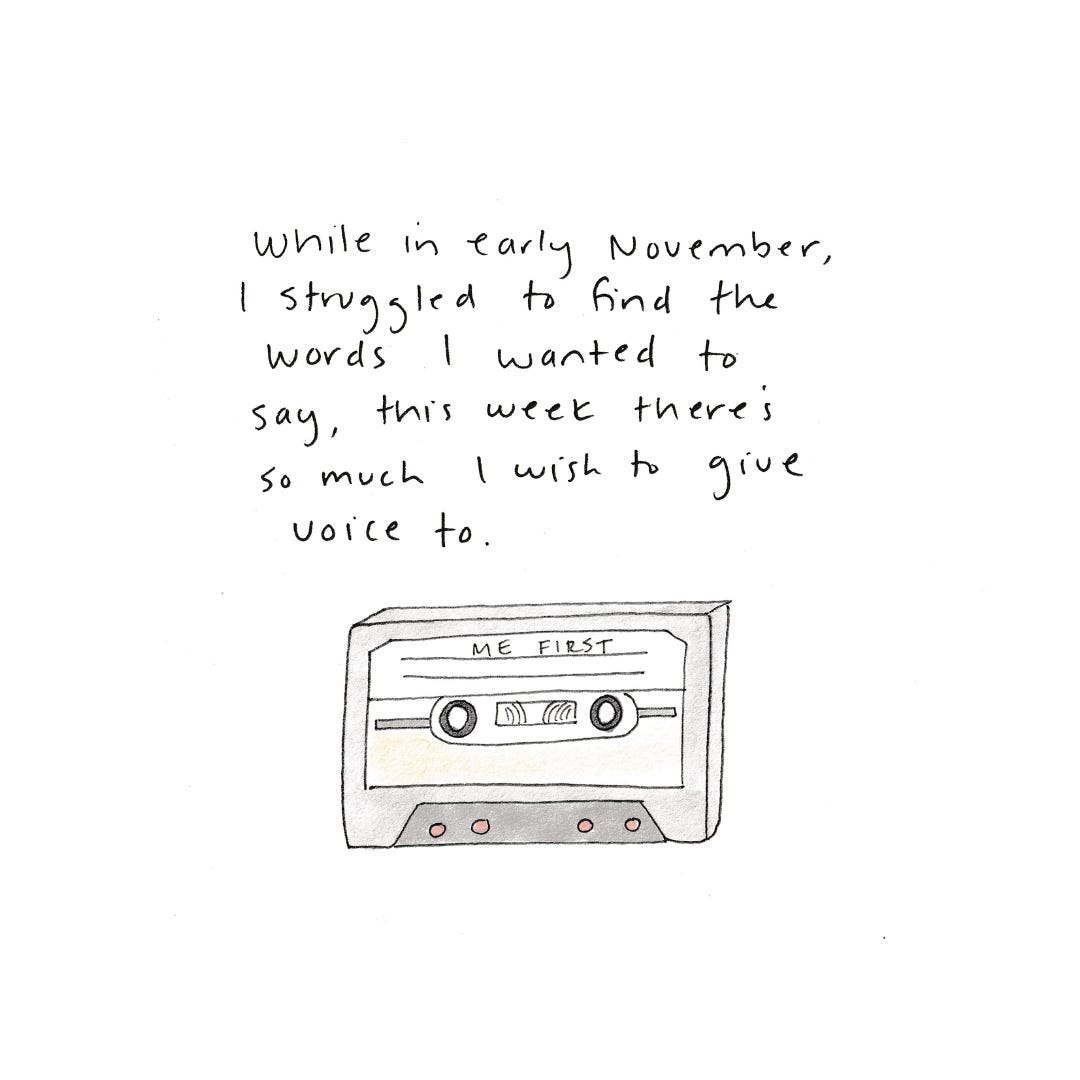 While in early November,
I struggled to find the
words I wanted to
say, this week there's
so much I wish to give
voice to.
ME FIRST